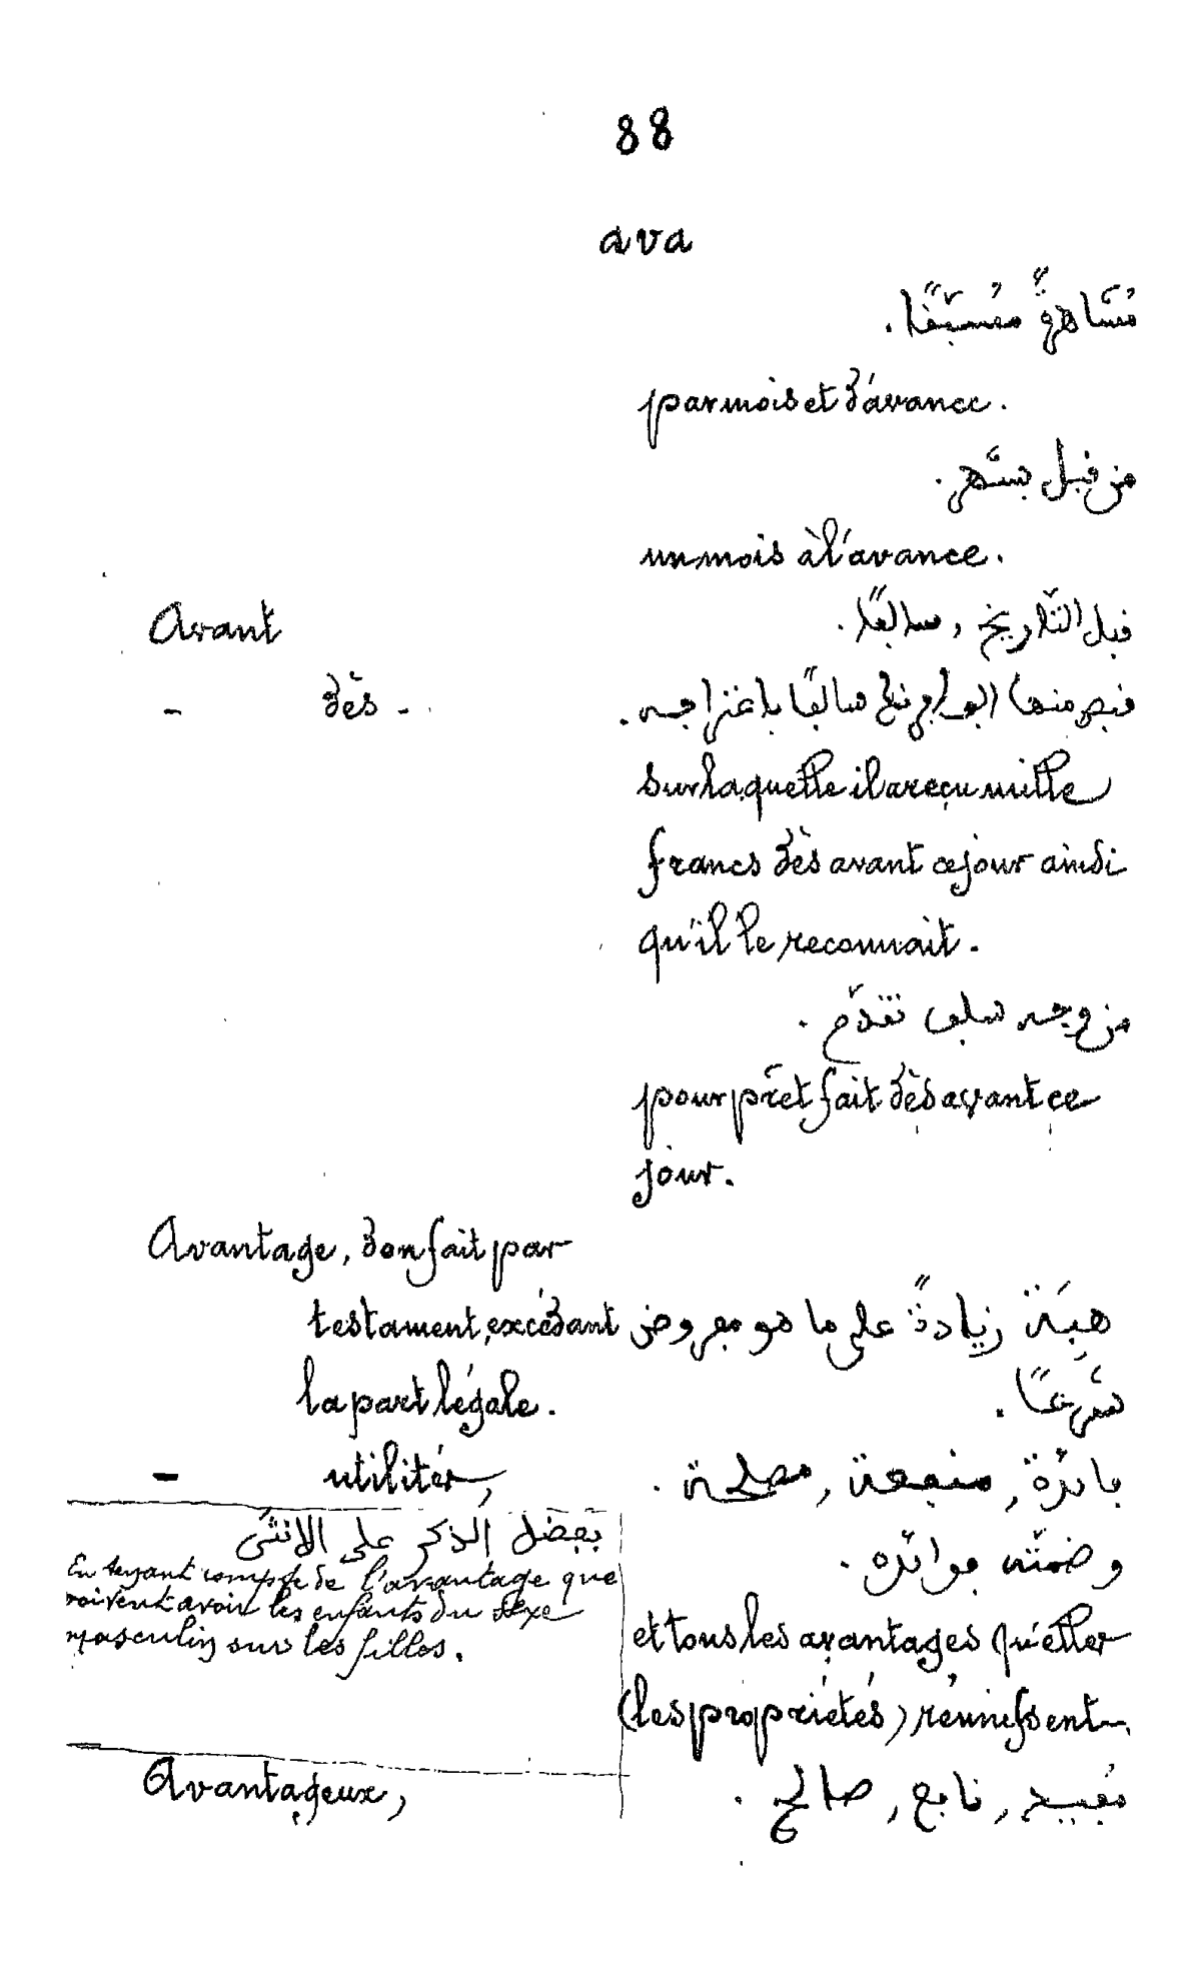 88
ava
مُشَاهرةً مُسَبَّقًا.
par mois et d'avance.
من قبل بشهر.
un mois à l'avance.
Avant
قبل التّاريخ , سابقًا.
- dès -
قبض منها سابقًا باعترافه.
sur laquelle il a reçu mille
francs dès avant ce jour ainsi
qu'il le reconnait.
من وجه سلف تقدّم.
pour prêt fait dès avant ce
jour.
Avantage, don fait par
testament, excédant
هِبَة زيادةً على ما هو مفروض
la part légale.
شرعًا.
- utilité,
فائدة, منفعة, مصلحة.
بفضل الذكر على الانثى
En tenant compte de l'avantage que
doivent avoir les enfants du sexe
masculin sur les filles.
وضمّته فوائده.
et tous les avantages qu'elles
(les propriétés) réunissent.
Avantageux,
مُفيد, نافع, صالح.